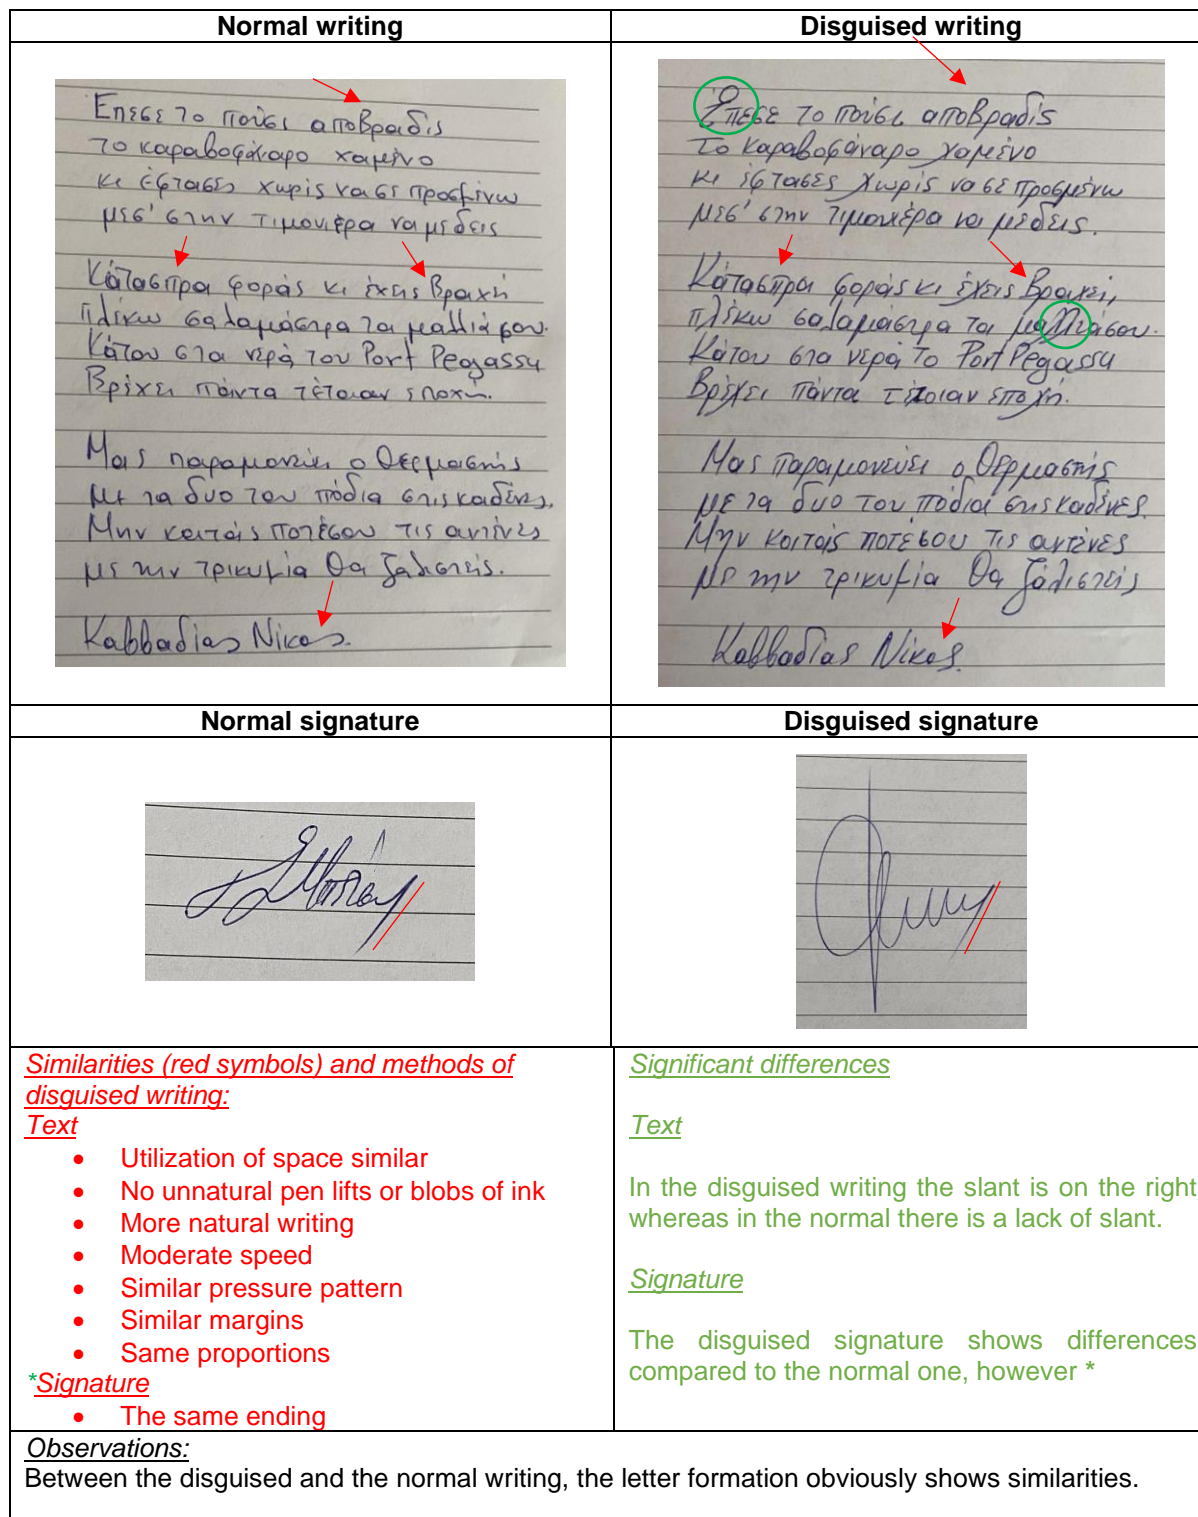 Normal writing
Disguised writing
Έπεσε το πούσι αποβραδίς
το καραβοφάναρο χαμένο
κι έφτασες χωρίς να σε προσμένω
μεσ' στην τιμονιέρα να με δεις
Κάτασπρα φοράς κι έχεις βραχή
πλέκω σαλαμάστρα τα μαλλιά σου.
Κάτου στα νερά του Port Pegassu
Βρέχει πάντα τέτοιαν εποχή.
Μας παραμονεύει ο θερμαστής
με τα δυο του πόδια στις καδένες.
Μην κοιτάς ποτέ σου τις αντένες
με την τρικυμία θα ζαλιστείς.
Καββαδίας Νίκος.
Έπεσε το πούσι αποβραδίς
Το καραβοφάναρο χαμένο
κι έφτασες χωρίς να σε προσμένω
μεσ' στην τιμονιέρα να με δεις.
Κάτασπρα φοράς κι έχεις βραχεί,
πλέκω σαλαμάστρα τα μαλλιά σου.
Κάτου στα νερά το Port Pegassu
Βρέχει πάντα τέτοιαν εποχή.
Μας παραμονεύει ο θερμαστής
με τα δυο του πόδια στις καδένες.
Μην κοιτάς ποτέ σου τις αντένες
με την τρικυμία θα ζαλιστείς
Καββαδίας Νίκος.
Normal signature
Disguised signature
Similarities (red symbols) and methods of
disguised writing:
Text
• Utilization of space similar
• No unnatural pen lifts or blobs of ink
• More natural writing
• Moderate speed
• Similar pressure pattern
• Similar margins
• Same proportions
*Signature
• The same ending
Significant differences
Text
In the disguised writing the slant is on the right
whereas in the normal there is a lack of slant.
Signature
The disguised signature shows differences
compared to the normal one, however *
Observations:
Between the disguised and the normal writing, the letter formation obviously shows similarities.